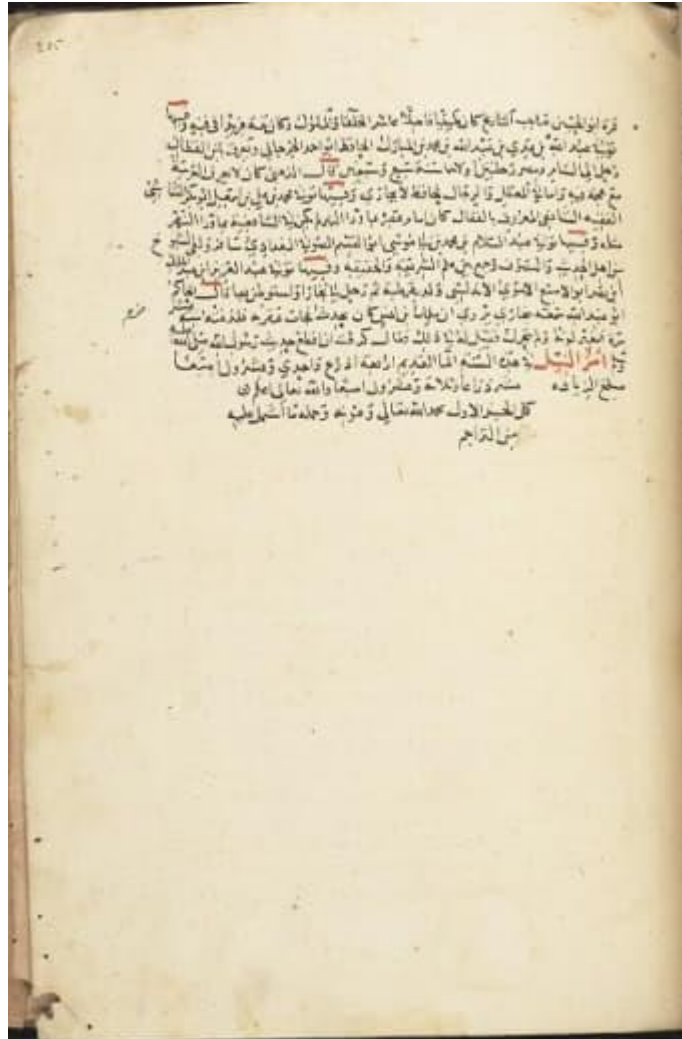 205
قرة ابو الحسن صاحب التاريخ كان طبيبا فاضلا عاشر الخلفاء والملوك وكان ثقة فريدا في فنه وفيها
توفي عبد الله بن عدي بن عبد الله بن محمد بن المبارك الحافظ ابو احمد الجرجاني ويعرف بابن القطان
رحل الى الشام ومصر رحلتين ولد سنة سبع وسبعين قال الذهبي كان لا يعرف العربية
مع عجمة فيه واما في العلل والرجال فحافظ لا يجارى وفيها توفي محمد بن علي بن اسمعيل ابو بكر الشاشي
الفقيه الشافعي المعروف بالقفال كان امام عصره بما وراء النهر لم يكن للشافعية بما وراء النهر
مثله وفيها توفي عبد السلام بن محمد بن ابي موسى ابو القسم الصوفي البغدادي سافر ولقي الشيوخ
من اهل الحديث والتصوف وجمع بين علم الشريعة والحقيقة وفيها توفي عبد العزيز ابن عبد الملك
ابن نصر ابو الاصبغ الاموي الاندلسي ولد بقرطبة ثم رحل الى بخارا واستوطن بها قال الحاكم
ابو عبد الله سمعته ببخارى يروي ان مالك بن انس كان يحدث فجات عقرب فلدغته ست عشر
مرة فتغير لونه ولم يتحرك فقيل له في ذلك فقال كرهت ان اقطع حديث رسول الله صلى الله عليه
وسلم امر النيل في هذه السنة الماء القديم اربعة اذرع واحدى وعشرون اصبعا
مبلغ الزيادة عشر ذراعا وثلاثة وعشرون اصبعا والله تعالى اعلم
كمل الجزء الاول بحمد الله تعالى وعونه وجملة ما اشتمل عليه
من التراجم